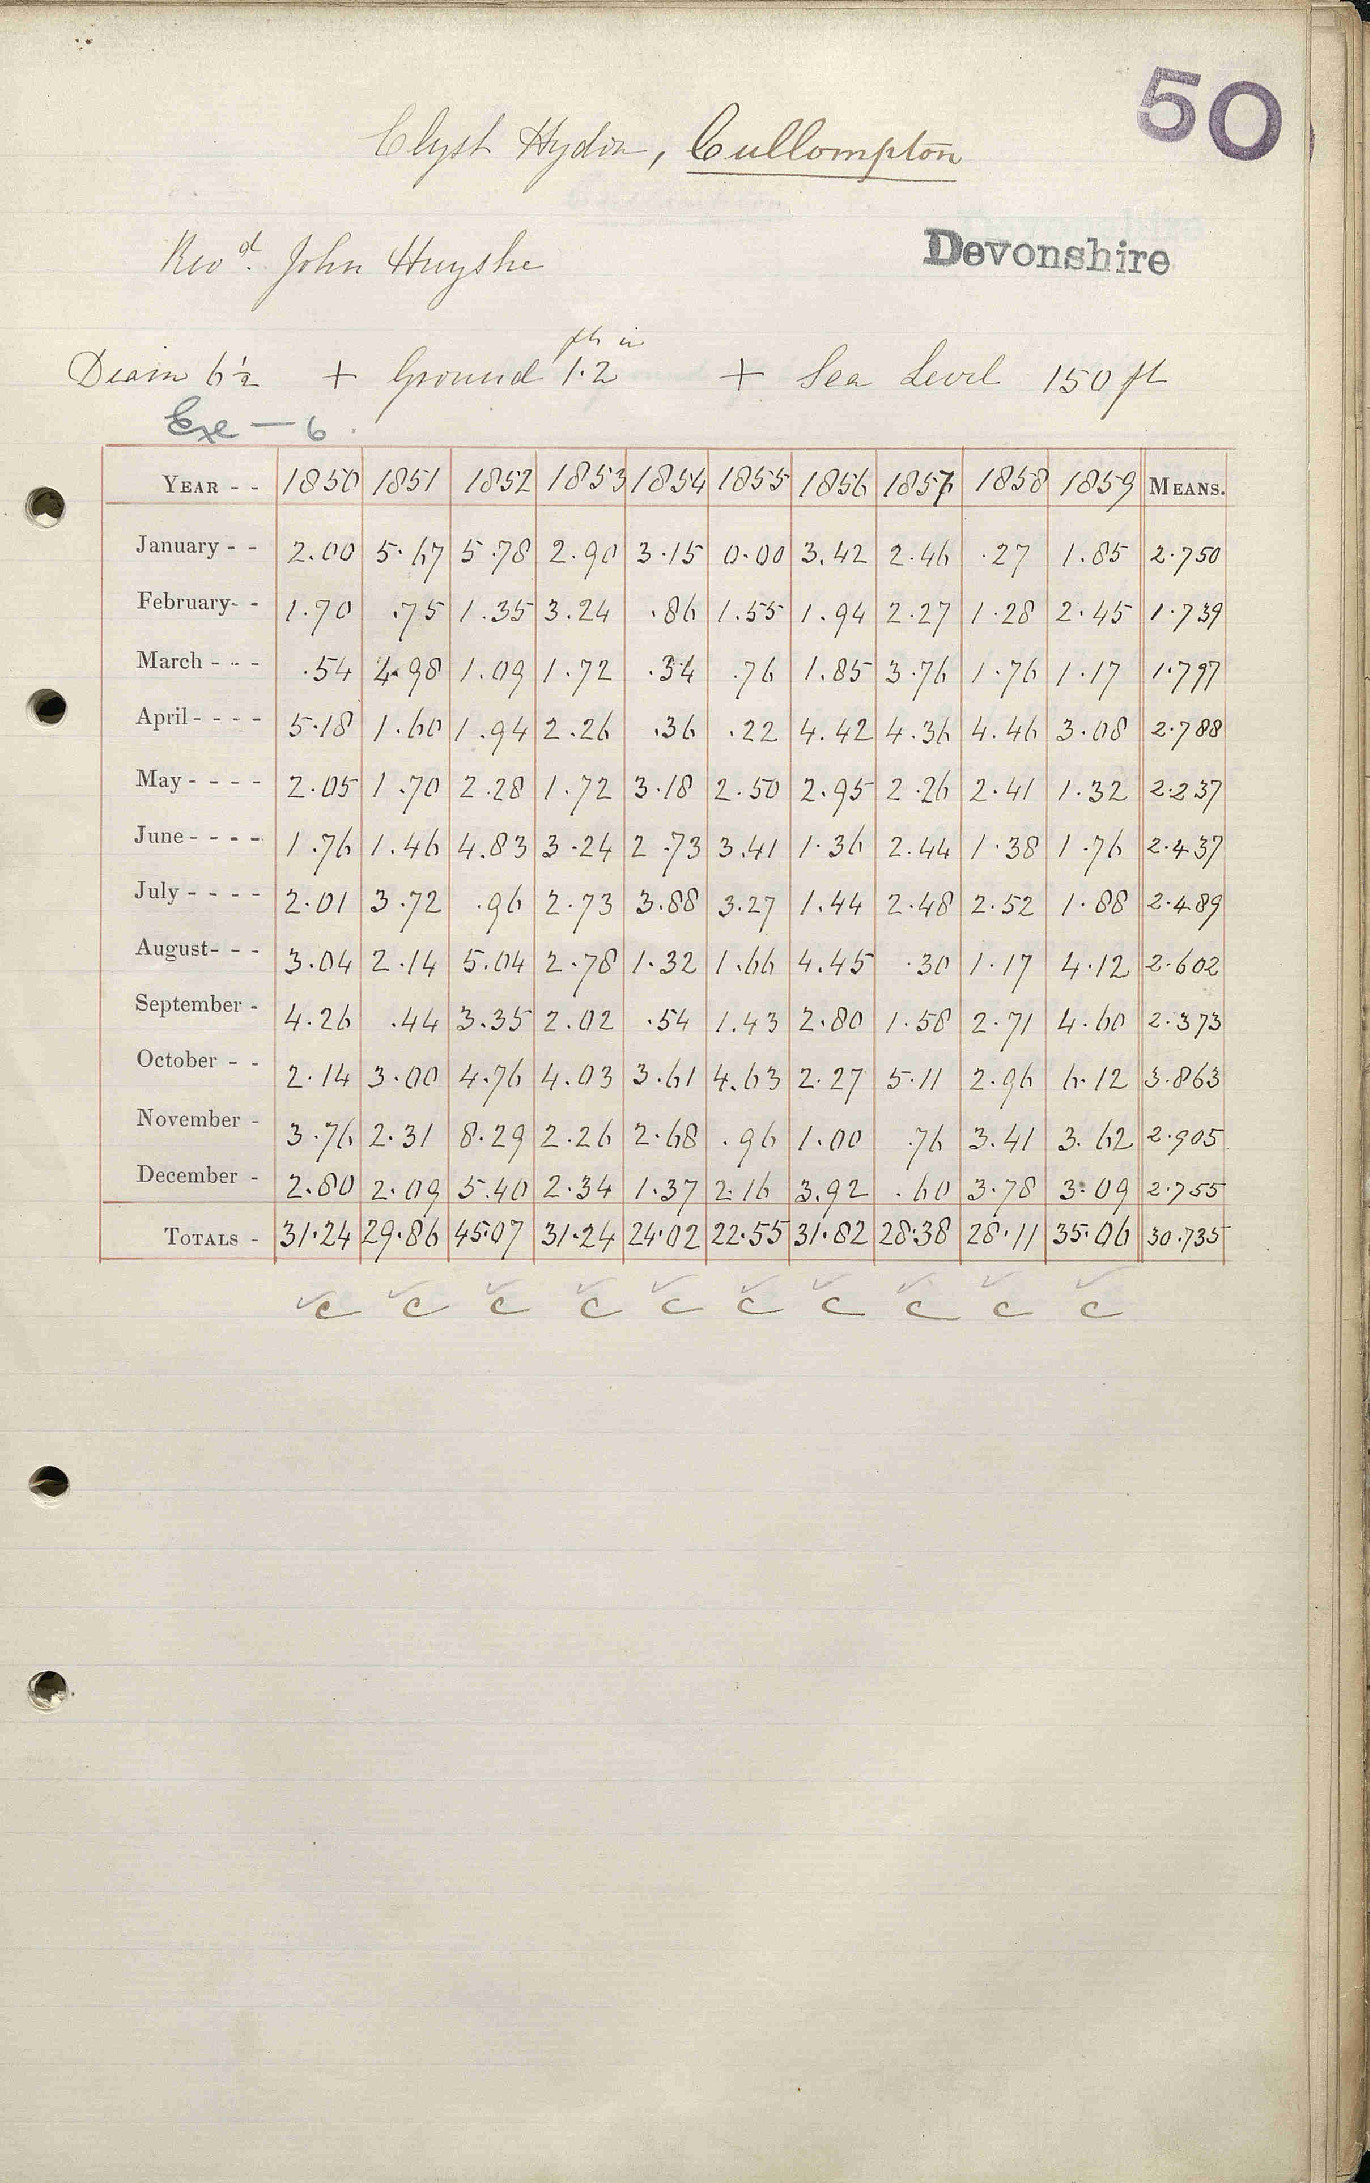 50
Clyst Hydon, Cullompton
Devonshire
Revd. John Huyshe
fts in
Diam 6½ + Ground 1.2 + Sea Level 150 ft
Exe — 6.
YEAR - - 1850 1851 1852 1853 1854 1855 1856 1857 1858 1859 MEANS.
January - - 2.00 5.67 5.78 2.90 3.15 0.00 3.42 2.46 .27 1.85 2.750
February- - 1.70 .75 1.35 3.24 .86 1.55 1.94 2.27 1.28 2.45 1.739
March - - - .54 4.98 1.09 1.72 .34 .76 1.85 3.76 1.76 1.17 1.797
April - - - - 5.18 1.60 1.94 2.26 .36 .22 4.42 4.36 4.46 3.08 2.788
May - - - - 2.05 1.70 2.28 1.72 3.18 2.50 2.95 2.26 2.41 1.32 2.237
June - - - - 1.76 1.46 4.83 3.24 2.73 3.41 1.36 2.44 1.38 1.76 2.437
July - - - - 2.01 3.72 .96 2.73 3.88 3.27 1.44 2.48 2.52 1.88 2.489
August- - - 3.04 2.14 5.04 2.78 1.32 1.66 4.45 .30 1.17 4.12 2.602
September - 4.26 .44 3.35 2.02 .54 1.43 2.80 1.58 2.71 4.60 2.373
October - - 2.14 3.00 4.76 4.03 3.61 4.63 2.27 5.11 2.96 6.12 3.863
November - 3.76 2.31 8.29 2.26 2.68 .96 1.00 .76 3.41 3.62 2.905
December - 2.80 2.09 5.40 2.34 1.37 2.16 3.92 .60 3.78 3.09 2.755
TOTALS - 31.24 29.86 45.07 31.24 24.02 22.55 31.82 28.38 28.11 35.06 30.735
✓c ✓c ✓c ✓c ✓c ✓c ✓c ✓c ✓c ✓c